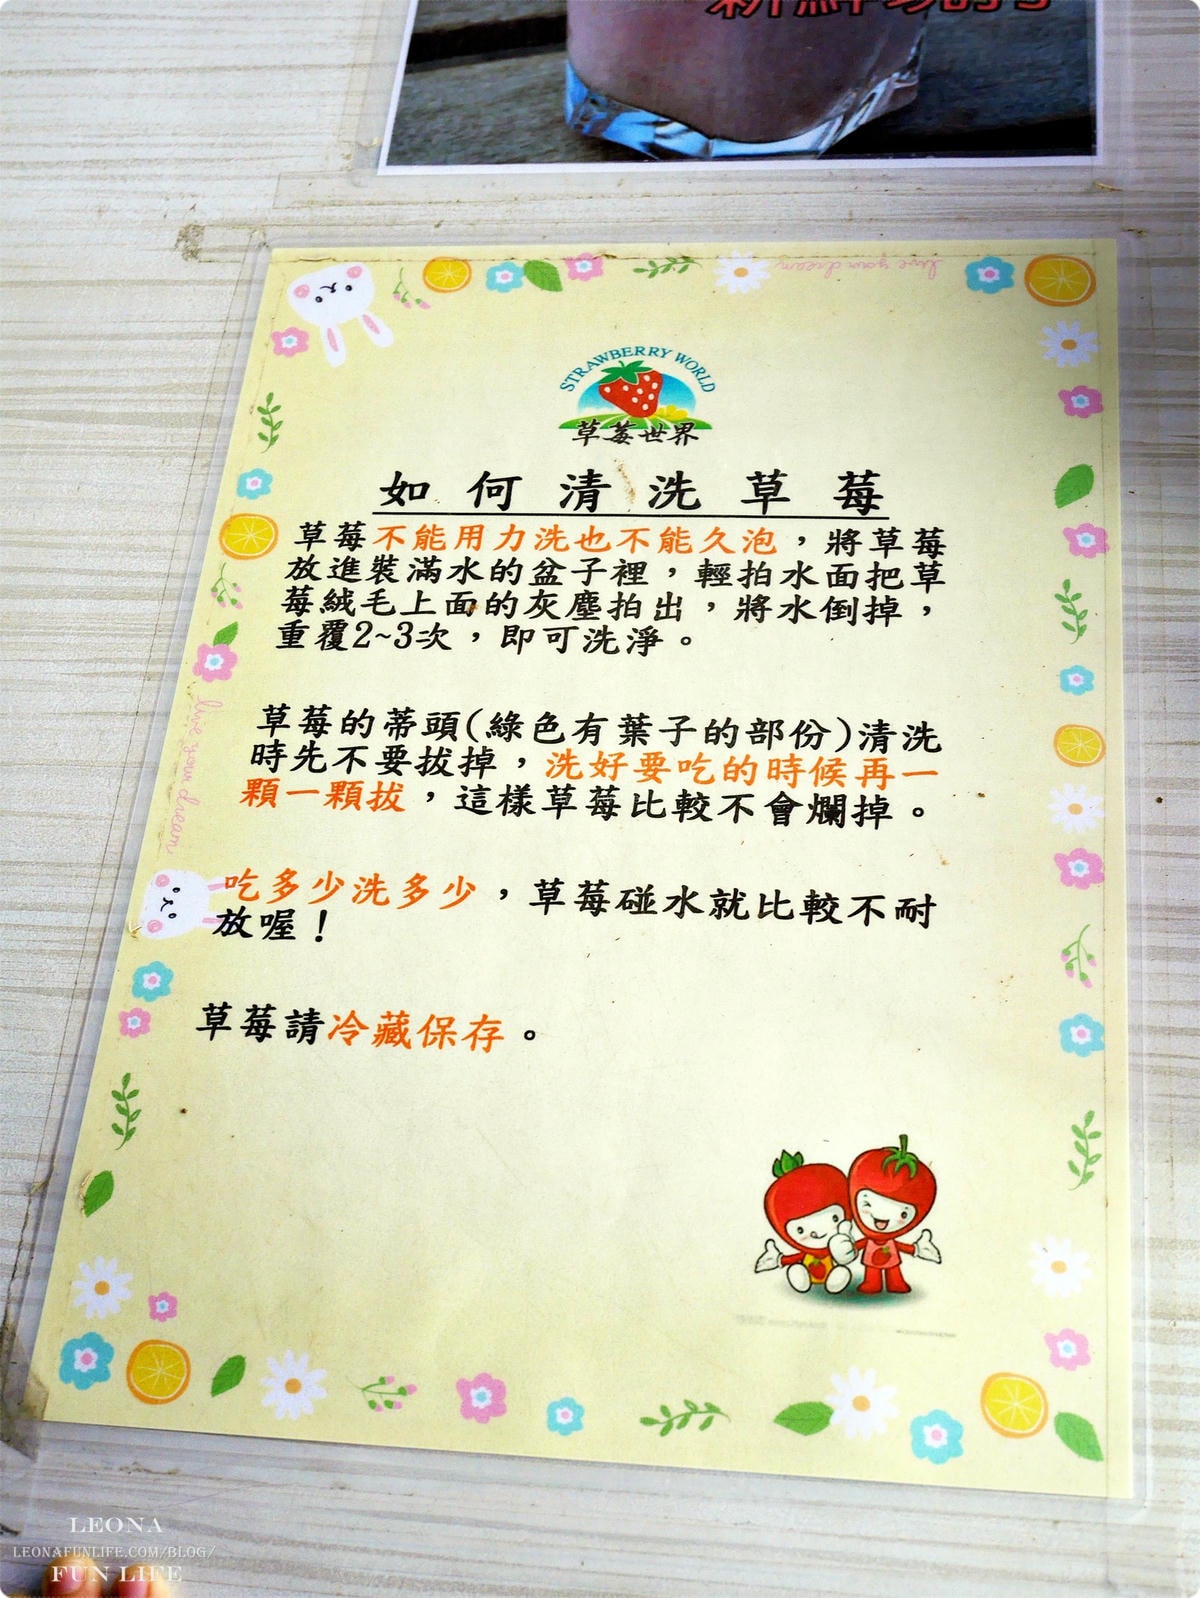 live your dream
STRAWBERRY WORLD
草莓世界
如何清洗草莓
草莓不能用力洗也不能久泡，將草莓
放進裝滿水的盆子裡，輕拍水面把草
莓絨毛上面的灰塵拍出，將水倒掉，
重覆2~3次，即可洗淨。
草莓的蒂頭(綠色有葉子的部份)清洗
時先不要拔掉，洗好要吃的時候再一
顆一顆拔，這樣草莓比較不會爛掉。
live your dream
吃多少洗多少，草莓碰水就比較不耐
放喔！
草莓請冷藏保存。
LEONA
LEONAFUNLIFE.COM/BLOG/
FUN LIFE